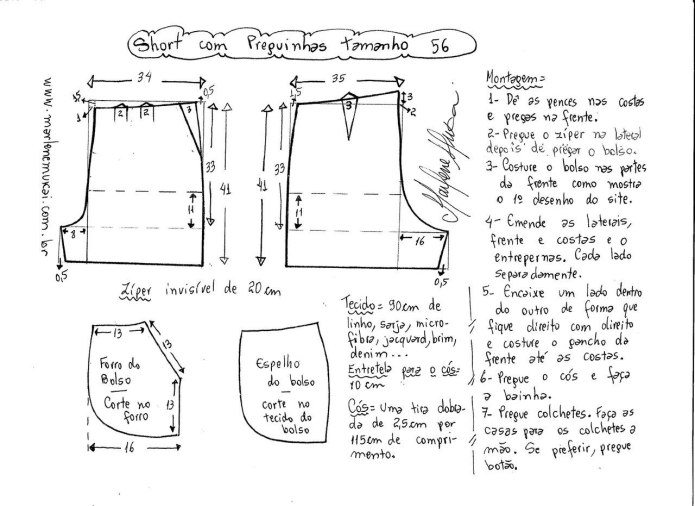 Short com Preguinhas tamanho 56
www.marlenemukai.com.br
34
1,5
0,5
1
2
2
3
33
41
11
8
0,5
35
1,5
3
3
2
41
33
11
16
0,5
Marlene Mukai
Zíper invisível de 20cm
13
13
13
16
Forro do
Bolso
Corte no
forro
Espelho
do bolso
corte no
tecido do
bolso
Tecido = 90cm de
linho, sarja, micro-
fibra, jacquard, brim,
denim...
Entretela para o cós=
10cm
Cós= Uma tira dobra-
da de 2,5cm por
115cm de compri-
mento.
Montagem=
1- Dê as pences nas costas
e pregas na frente.
2- Pregue o zíper na lateral
depois de pregar o bolso.
3- Costure o bolso nas partes
da frente como mostra
o 1º desenho do site.
4- Emende as laterais,
frente e costas e o
entrepernas. Cada lado
separadamente.
5- Encaixe um lado dentro
do outro de forma que
fique direito com direito
e costure o gancho da
frente até as costas.
6- Pregue o cós e faça
a bainha.
7- Pregue colchetes. Faça as
casas para os colchetes a
mão. Se preferir, pregue
botão.